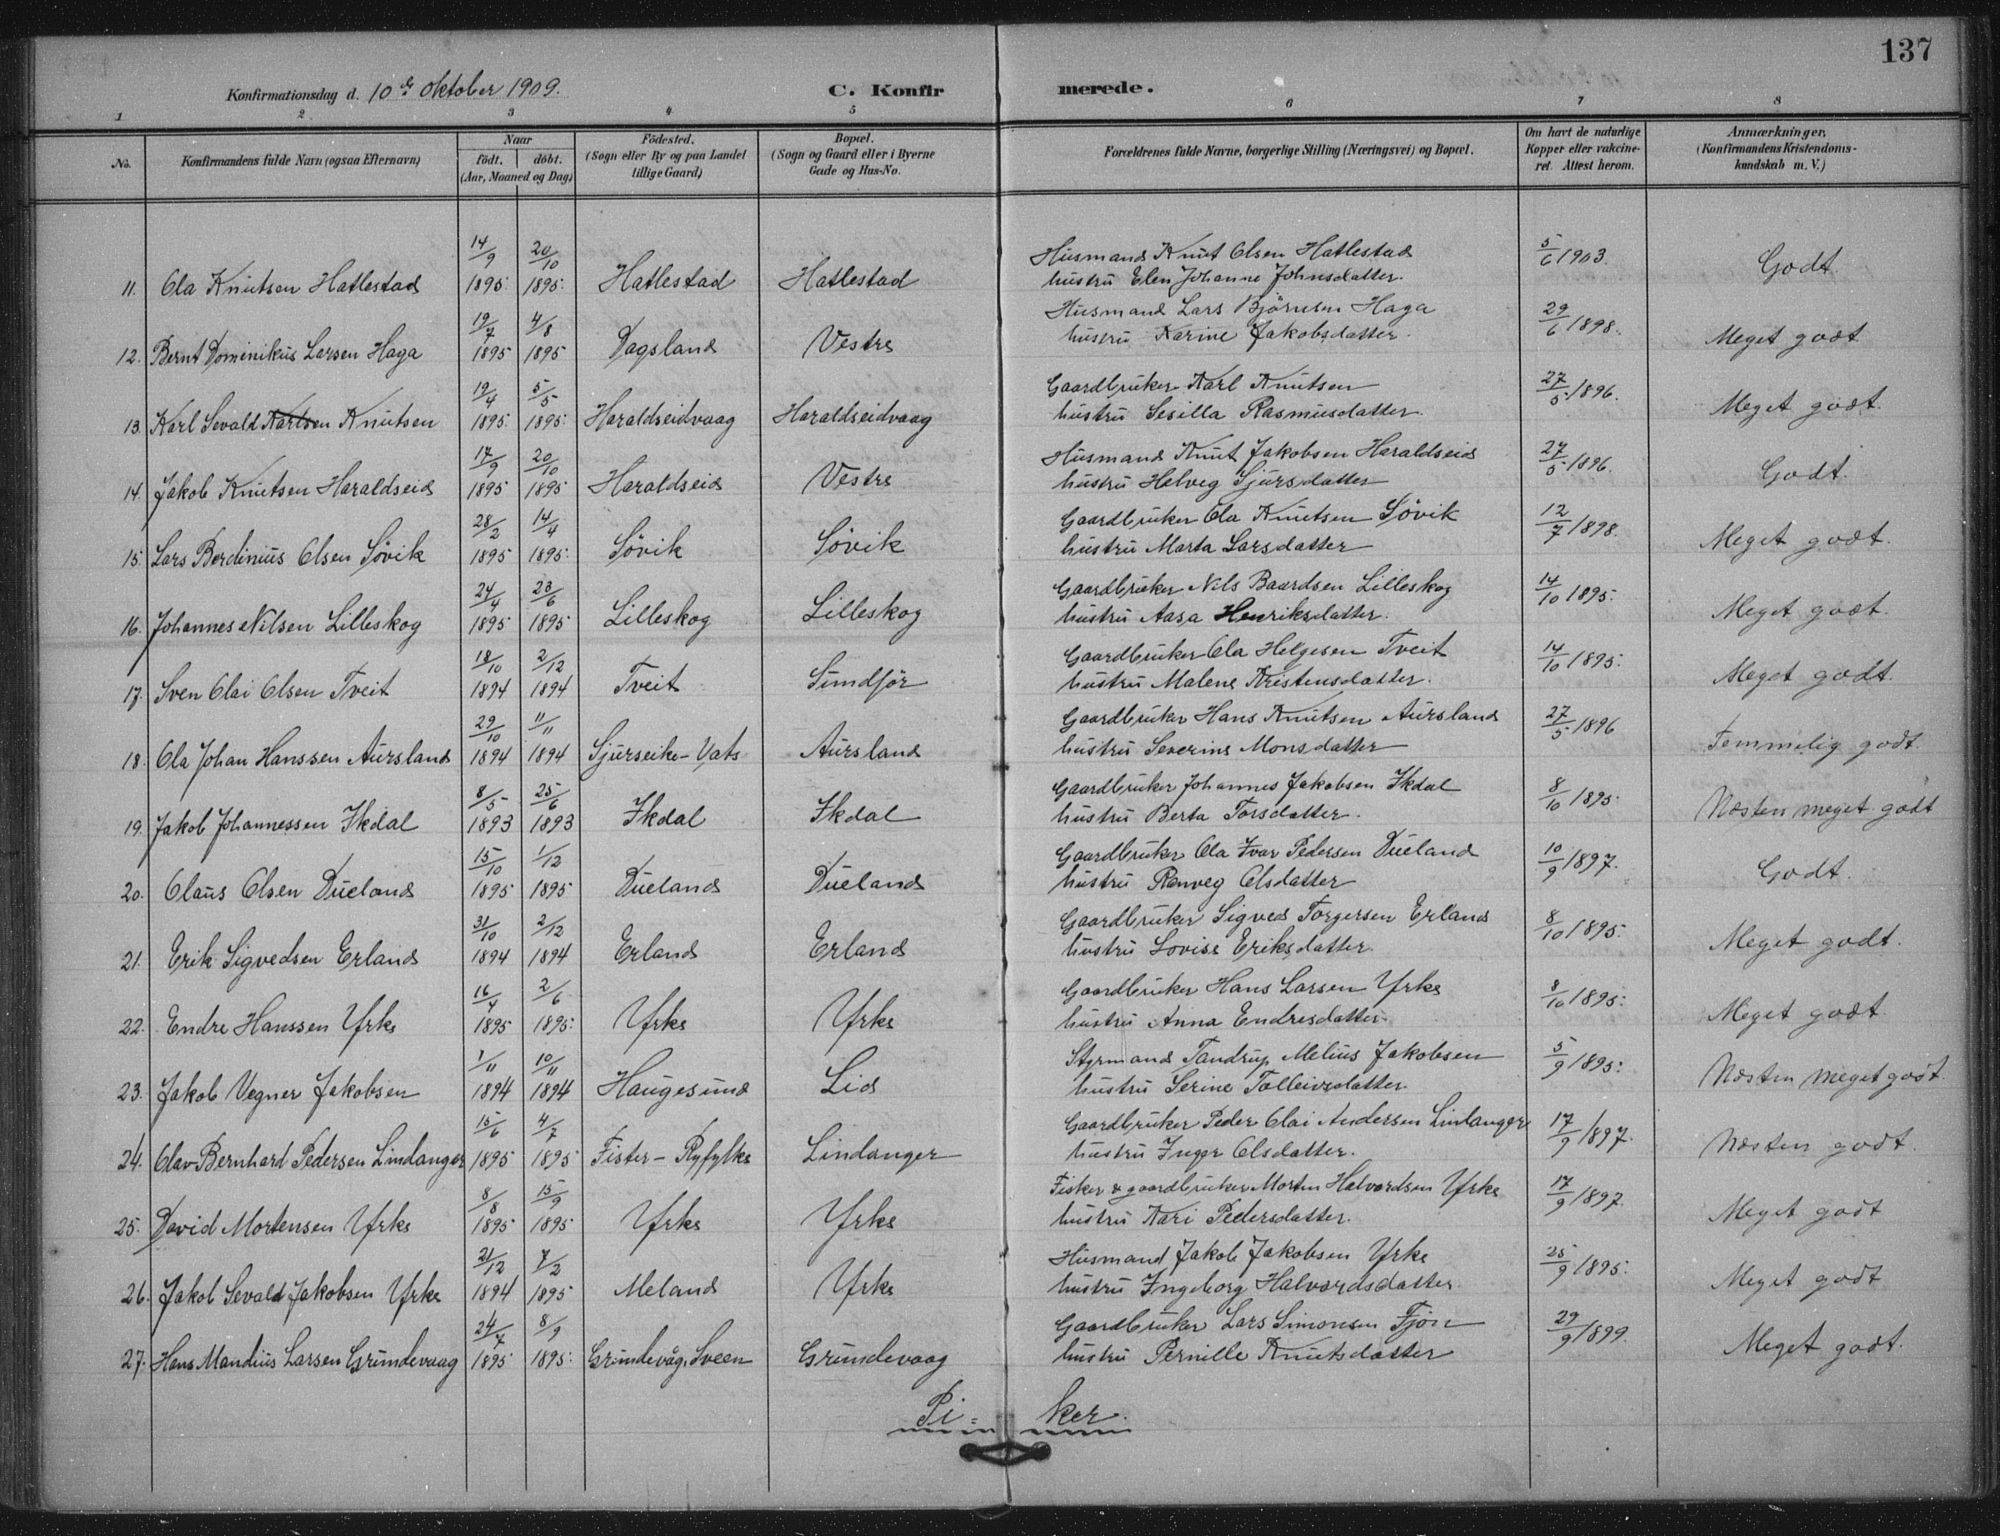 137
Konfirmationsdag d. 10de Oktober 1909.
C. Konfirmerede.
1 2 3 4 5 6 7 8
No. Konfirmandens fulde Navn (ogsaa Efternavn) Naar født. døbt. (Aar, Maaned og Dag) Fødested. (Sogn eller By og paa Landet tillige Gaard) Bopæl. (Sogn og Gaard eller i Byerne Gade og Hus-No. Forældrenes fulde Navne, borgerlige Stilling (Næringsvei) og Bopæl. Om havt de naturlige Kopper eller vakcineret. Attest herom. Anmærkninger, (Konfirmandens Kristendomskundskab m. V.)
11. Ola Knutsen Hatlestad 14/9 1895 20/10 1895 Hatlestad Hatlestad Husmand Knut Olsen Hatlestad 5/6 1903. Godt
hustru Elen Johanne Johnsdatter.
12. Bernt Dominikus Larsen Haga 19/7 1895 4/8 1895 Dagsland Vestre Husmand Lars Bjørnsen Haga 29/6 1898. Meget godt
hustru Karine Jakobsdatter.
13. Karl Sevald Karlsen Knutsen 19/4 1895 5/5 1895 Haraldseidvaag Haraldseidvaag Gaardbruker Karl Knutsen 27/5 1896. Meget godt
hustru Sesilla Rasmusdatter.
14. Jakob Knutsen Haraldseid 17/9 1895 20/10 1895 Haraldseid Vestre Husmand Knut Jakobsen Haraldseid 27/5 1896. Godt.
hustru Helveg Sjursdatter
15. Lars Berdinius Olsen Søvik 28/2 1895 14/4 1895 Søvik Søvik Gaardbruker Ola Knutsen Søvik 12/7 1898. Meget godt.
hustru Marta Larsdatter
16. Johannes Nilsen Lilleskog 24/4 1895 23/6 1895 Lilleskog Lilleskog Gaardbruker Nils Baardsen Lilleskog 14/10 1895. Meget godt.
hustru Aasa Henriksdatter.
17. Sven Olai Olsen Tveit 18/10 1894 2/12 1894 Tveit Sundfør Gaardbruker Ola Helgesen Tveit 14/10 1895. Meget godt.
hustru Malene Kristensdatter.
18. Ola Johan Hanssen Aursland 29/10 1894 11/11 1894 Sjurseike-Vats Aursland Gaardbruker Hans Knutsen Aursland 27/5 1896 Temmelig godt.
hustru Severine Monsdatter
19. Jakob Johannessen Ikdal 8/5 1893 25/6 1893 Ikdal Ikdal Gaardbruker Johannes Jakobsen Ikdal 8/10 1895. Næsten meget godt
hustru Berta Torsdatter.
20. Claus Olsen Dueland 15/10 1895 1/12 1895 Dueland Dueland Gaardbruker Ola Ivar Pedersen Dueland 10/9 1897. Godt.
hustru Ranveg Olsdatter
21. Erik Sigvedsen Erland 31/10 1894 2/12 1894 Erland Erland Gaardbruker Sigved Torgersen Erland 8/10 1895. Meget godt.
hustru Lovise Eriksdatter.
22. Endre Hanssen Yrke 16/4 1895 2/6 1895. Yrke Yrke Gaardbruker Hans Larsen Yrke 8/10 1895. Meget godt.
hustru Anna Endresdatter.
23. Jakob Vegner Jakobsen 1/11 1894 10/11 1894 Haugesund Lid Styrmand Tandrup Melius Jakobsen 5/9 1895. Næsten meget godt.
hustru Serine Tolleivsdatter.
24. Olav Bernhard Pedersen Lindanger 15/6 1895 4/7 1895 Fister - Ryfylke Lindanger Gaardbruker Peder Olai Andersen Lindanger 17/9 1897. Næsten godt.
hustru Inger Olsdatter.
25. David Mortensen Yrke 8/8 1895 15/9 1895 Yrke Yrke Fisker & gaardbruker Morten Halvordsen Yrke 17/9 1897. Meget godt
hustru Kari Pedersdatter.
26. Jakob Sevald Jakobsen Yrke 21/12 1894 7/2 1895 Meland Yrke Husmand Jakob Jakobsen Yrke 25/9 1895. Meget godt
hustru Ingeborg Halvordsdatter.
27. Hans Mandius Larsen Grindevaag 24/7 1895 8/9 1895. Grindevåg, Sveen Grindevaag Gaardbruker Lars Simonsen Tjøn 29/9 1899. Meget godt.
hustru Pernille Knutsdatter
Pi=ker.